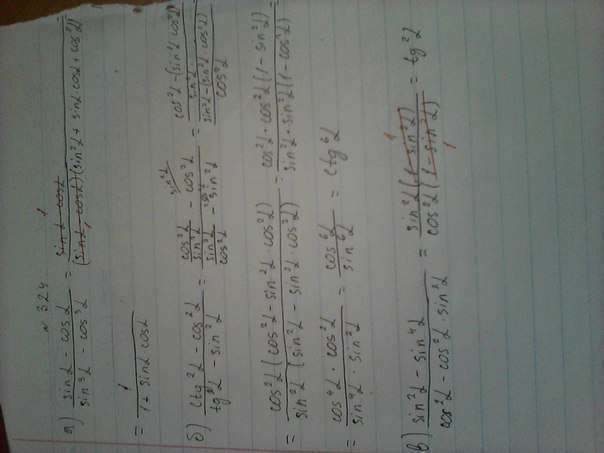 № 324
а) (sinα - cosα)/(sin³α - cos³α) = (sinα - cosα)/((sinα - cosα)(sin²α + sinα cosα + cos²α)) =
= 1/(1 + sinα cosα)
б) (ctg²α - cos²α)/(tg²α - sin²α) = (cos²α/sin²α - cos²α)/(sin²α/cos²α - sin²α) = ((cos²α - (sin²α cos²α))/sin²α)/((sin²α - (sin²α cos²α))/cos²α) =
= cos²α(cos²α - sin²α cos²α)/(sin²α(sin²α - sin²α cos²α)) = cos²α · cos²α(1 - sin²α)/(sin²α · sin²α(1 - cos²α)) =
= (cos⁴α · cos²α)/(sin⁴α · sin²α) = cos⁶α/sin⁶α = ctg⁶α
в) (sin²α - sin⁴α)/(cos²α - cos²α · sin²α) = sin²α(1 - sin²α)/(cos²α(1 - sin²α)) = tg²α